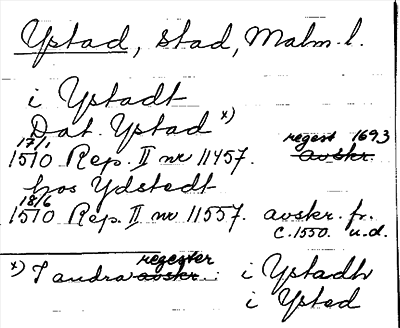 Ystad, stad, Malm. l.
i Ystadt
Dat. Ystad x)
17/1 1510 Rep. II nr 11457. regest 1693 avskr.
hos Ydstedt
18/6 1510 Rep. II nr 11557. avskr. fr. c. 1550. u.d.
x) I andra regester avskr.: i Ystadh
i Ysted